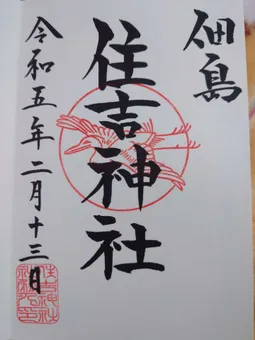 佃島
住吉神社
令和五年二月十三日